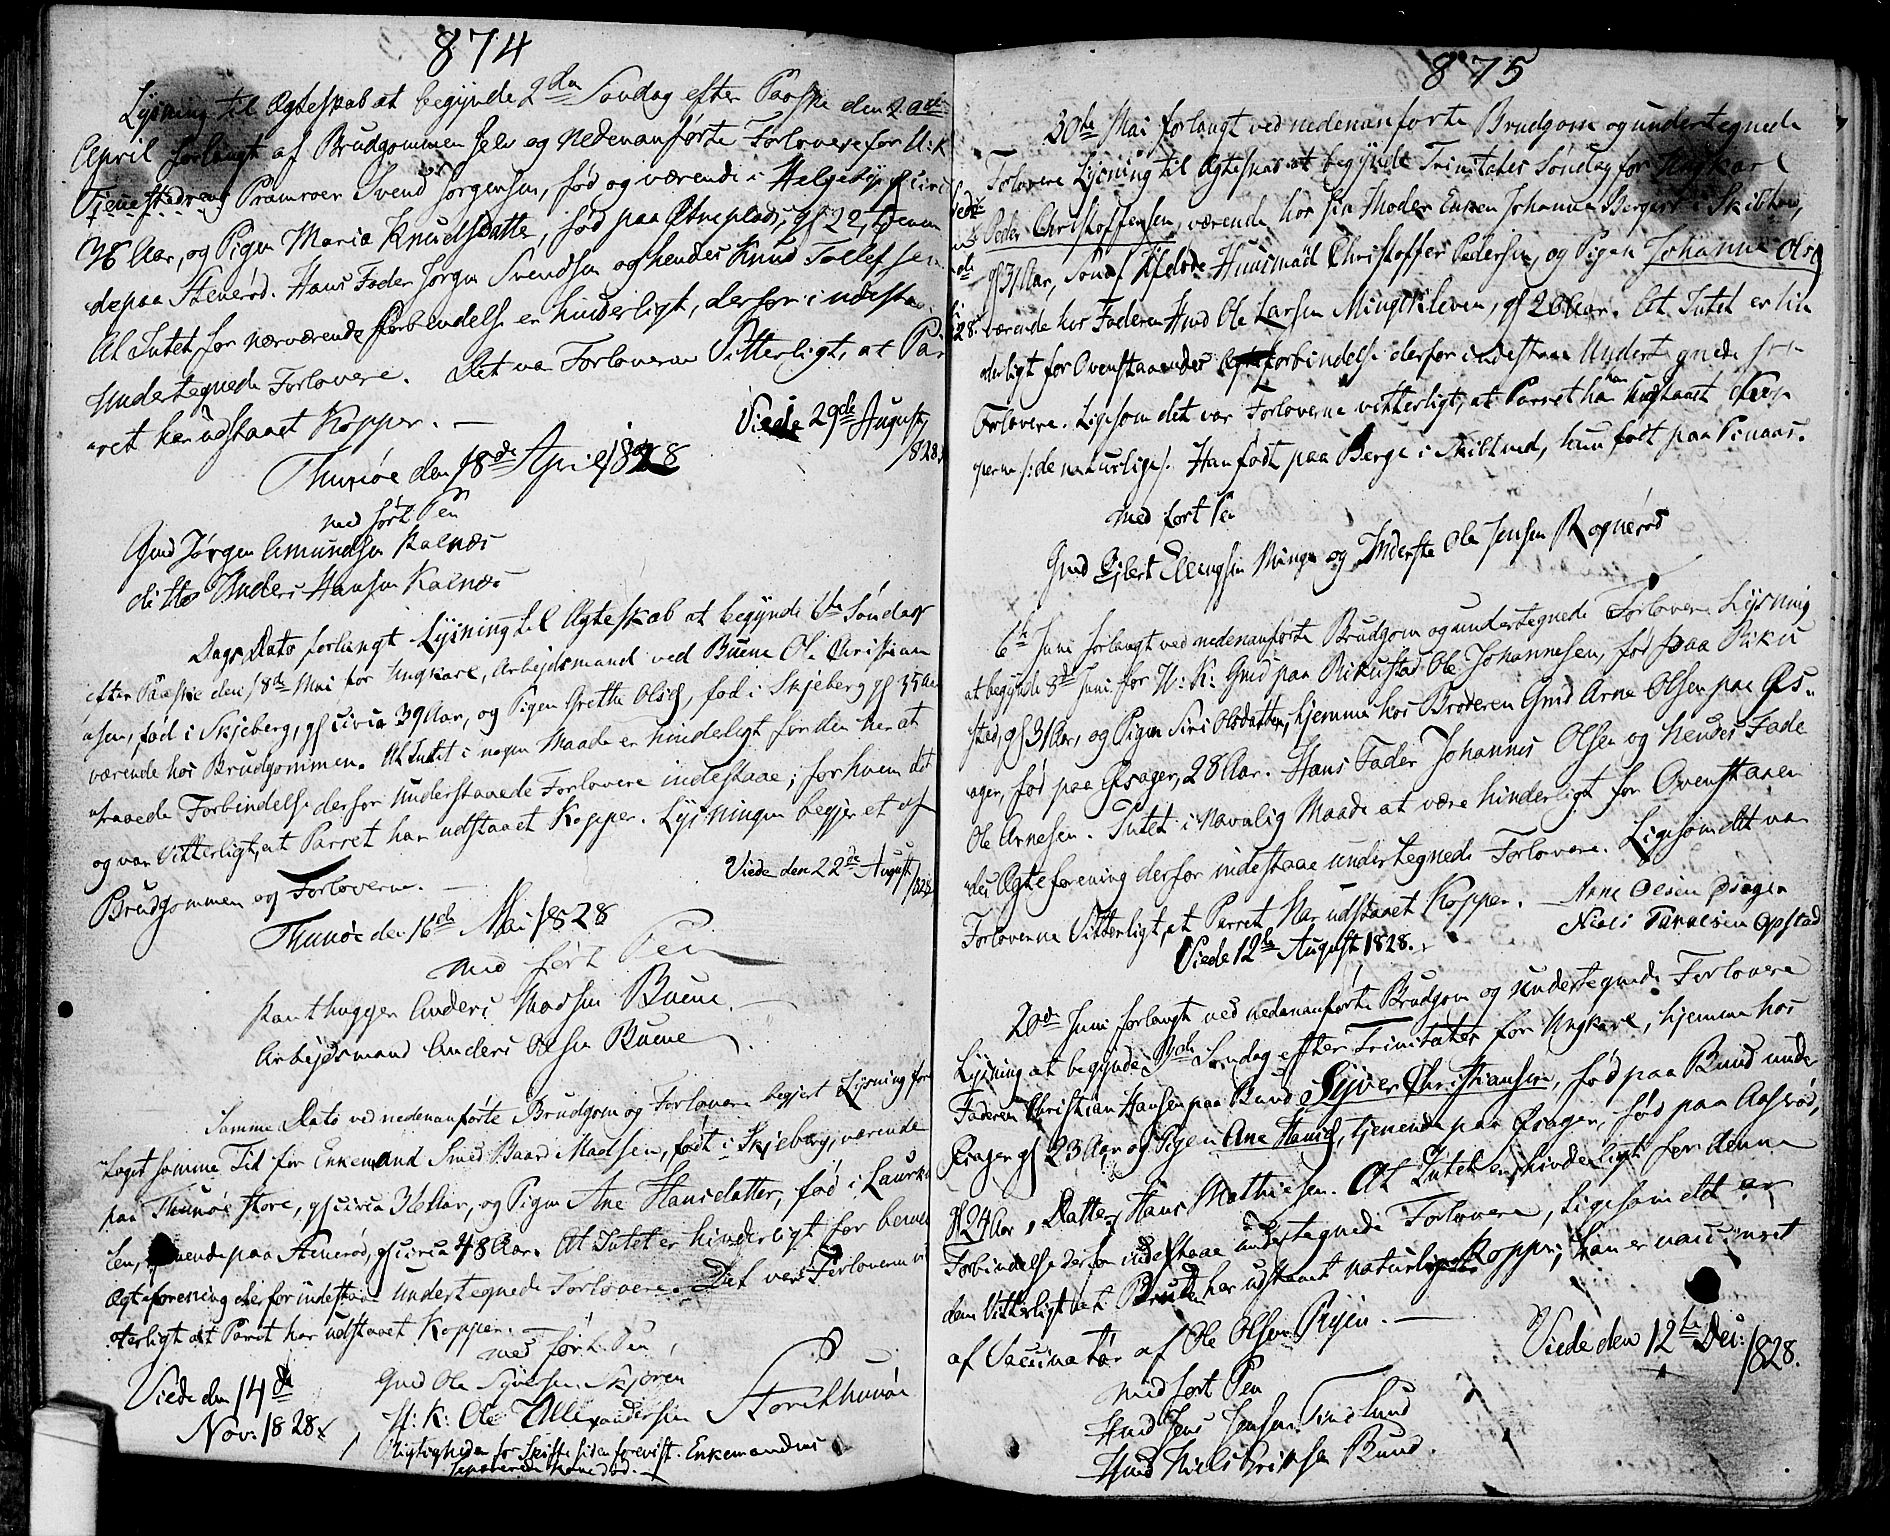 874
Lysning til Ægteskab at begynde 2den Søndag efter Paaske den 20de
April forlangt af Brudgommen selv og nedenanførte Forlovere for U: K
Tjenestedreng Pramroer Svend Jørgensen, fød og værende i Helgebye gl circa
Aar, og Pigen Maria Knudsdatter, fød paa Otneplads, gl 22,
de paa Stenerød. Hans Fader Jørgen Svendsen og hendes Knud Tollefsen
At Intet for nærværende Forbindelse er hinderligt, derfor indestaae
Undertegnede Forlovere. Det var Forloverne Vitterligt, at Par
ret har udstaaet Kopper. —
Viede 29de August
1828.
Thunøe den 18de April 1828
med ført Pen
Gmd Jørgen Amundsen Kalnæs
ditto Anders Hansen Kalnæs
Dags Dato forlangt Lysning til Ægteskab at begynde 6te Søndag
efter Paaske den 18de Mai for Ungkarl, Arbejdsmand ved Buene Ole Christian
sen, fød i Skjeberg, gl circa 39 Aar, og Pigen Grethe Olsd, fød i Skjeberg gl 35 Aar
værende hos Brudgommen. At Intet i nogen Maade er hinderligt for den her at
traaede Forbindelse derfor understaaede Forlovere indestaae; for hvem det
og var Vitterligt, at Parret har udstaaet Kopper. Lysningen begjeret af
Brudgommen og Forloverne. —
Viede den 22de August
1828
Thunøe den 16de Mai 1828
med ført Pen
Kanthugger Anders Madsen Buene
Arbejdsmand Anders Olsen Buene
Samme Dato ved nedenanførte Brudgom og Forlovere begjert Lysning for
taget samme Tid for Enkemand Smed Baard Madsen, født i Skjeberg, værende
paa Thunøe Store, gl circa 36 Aar, og Pigen Ane Hansdatter, fød i Laurko
len, tjenende paa Stenerød, gl circa 48 Aar. At Intet er hinderligt for bemel
Ægteforening derfor indestaae undertegnede Forlovere. Det var Forloverne vi
tterligt at Parret har udstaaet Kopper. —
med ført Pen
Viede den 14de
Nov: 1828
Gmd Ole Syversen Skjøren
H: K: Ole Allexandersen Storethunøe
Rigtigheden for Skifte siden forevist. Enkemandens
Kone død.
875
30te Mai forlangt ved nedenanførte Brudgom og undertegnede
Forlovere Lysning til Ægteskab at begynde Trinitates Søndag for Ungkarl
Peder Christoffersen, værende hos sin Moder Enken Johanne Berger i Skibtved,
gl 31 Aar, Søn af Afdøde Huusmand Christoffer Pedersen, og Pigen Johanne Olsd
værende hos Faderen Hmd Ole Larsen Mingekleven, gl 26 Aar. At Intet er hin
derligt for Ovenstaaendes Forbindelse derfor indestaae Undertegnede
Forlovere. Ligesom det var Forloverne vitterligt, at Parret har udstaaet Kop
perne /: de naturlige :/. Han født paa Berge i Skibtved, hun født paa Pinaas.
med ført Pen
Gmd Ejlert Ellingsen Minge og Inderste Ole Jensen Rognerød
6te Juni forlangt ved nedenanførte Brudgom og undertegnede Forlovere Lysning
at begynde 8de Juni for U: K: Gmd paa Rikustad Ole Johannesen, fød paa Riku
stad, gl 31 Aar, og Pigen Siri Olsdatter, hjemme hos Broderen Gmd Arne Olsen paa Øs-
ager, fød paa Øsager, 28 Aar. Hans Fader Johannes Olsen og hendes Fader
Ole Arnesen. Intet i navnlig Maade at være hinderligt for Ovenstaaen
des Ægteforening derfor indestaae undertegnede Forlovere. Ligesom det var
Forloverne Vitterligt, at Parret har udstaaet Kopper. — Arne Olsen Øsager
Viede 12te August 1828.
Opstad
20de Juni forlangt ved nedenanførte Brudgom og undertegnede Forlovere
Lysning at begynde Søndag efter Trinitates for Ungkarl, hjemme hos
Faderen Christian Hansen paa Bund Syver Christiansen, fød paa Bund under
Øsager gl 23 Aar og Pigen Ane Hansd, tjenende paa Øsager, fød paa Aasrød,
gl 24 Aar, Datter Hans Mathiesen. At Intet er hinderligt for denne
Forbindelse derfor indestaae undertegnede Forlovere, ligesom det er
dem Vitterligt at Bruden har udstaaet naturlige Kopper, han er vaccineret
af Vaccinatør af Ole Olsen Ryen. —
Viede den 12te Dec:
1828.
med ført Pen
Hmd Jens Jensen
Hmd Niels Bund.